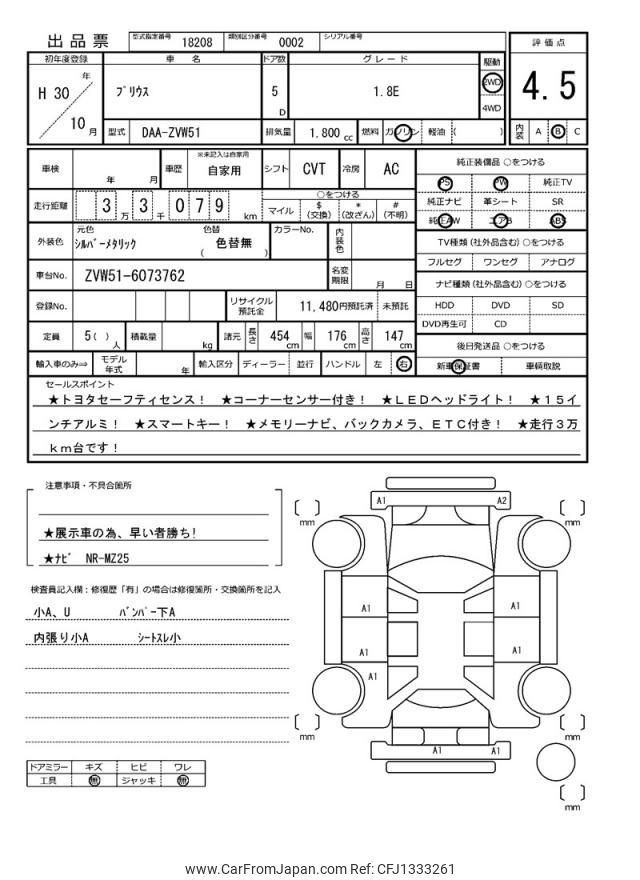 出品票
型式指定番号 18208 類別区分番号 0002 シリアル番号
評価点
初年度登録 車名 ドア数 グレード 駆動
H 30 年 10 月
プリウス
5 D
1.8E
2WD
4WD
4.5
型式 DAA-ZVW51 排気量 1.800 cc 燃料 ガソリン 軽油 ( )
内装 A B C
車検 年 月 車歴 ※未記入は自家用 自家用 シフト CVT 冷房 AC
純正装備品 ○をつける
PS PW 純正TV
純正ナビ 革シート SR
純正AW エアB ABS
走行距離 3 万 3 千 0 7 9 km
○をつける
マイル $ (交換) * (改ざん) # (不明)
外装色 元色 シルバーメタリック 色替 ( 色替無 ) カラーNo. 内装色
TV種類 (社外品含む) ○をつける
フルセグ ワンセグ アナログ
車台No. ZVW51-6073762 名変期限 月 日
ナビ種類 (社外品含む) ○をつける
HDD DVD SD
DVD再生可 CD
登録No. リサイクル預託金 11,480円預託済 未預託
定員 5( ) 人 積載量 kg 諸元 長さ 454 cm 幅 176 cm 高さ 147 cm
後日発送品 ○をつける
新車保証書 車輌取説
輸入車のみ⇒ モデル年式 年 輸入区分 ディーラー 並行 ハンドル 左 右
セールスポイント
★トヨタセーフティセンス! ★コーナーセンサー付き! ★LEDヘッドライト! ★15イ
ンチアルミ! ★スマートキー! ★メモリーナビ、バックカメラ、ETC付き! ★走行3万
km台です!
注意事項・不具合箇所
★展示車の為、早い者勝ち!
★ナビ NR-MZ25
検査員記入欄:修復歴「有」の場合は修復箇所・交換箇所を記入
小A、U バンパー下A
内張り小A シートスレ小
ドアミラー キズ ヒビ ワレ
工具 無 ジャッキ 無
A1 A2
mm mm
A1 A1
A1 A1
A1
mm mm
A1 A1
mm
www.CarFromJapan.com Ref: CFJ1333261